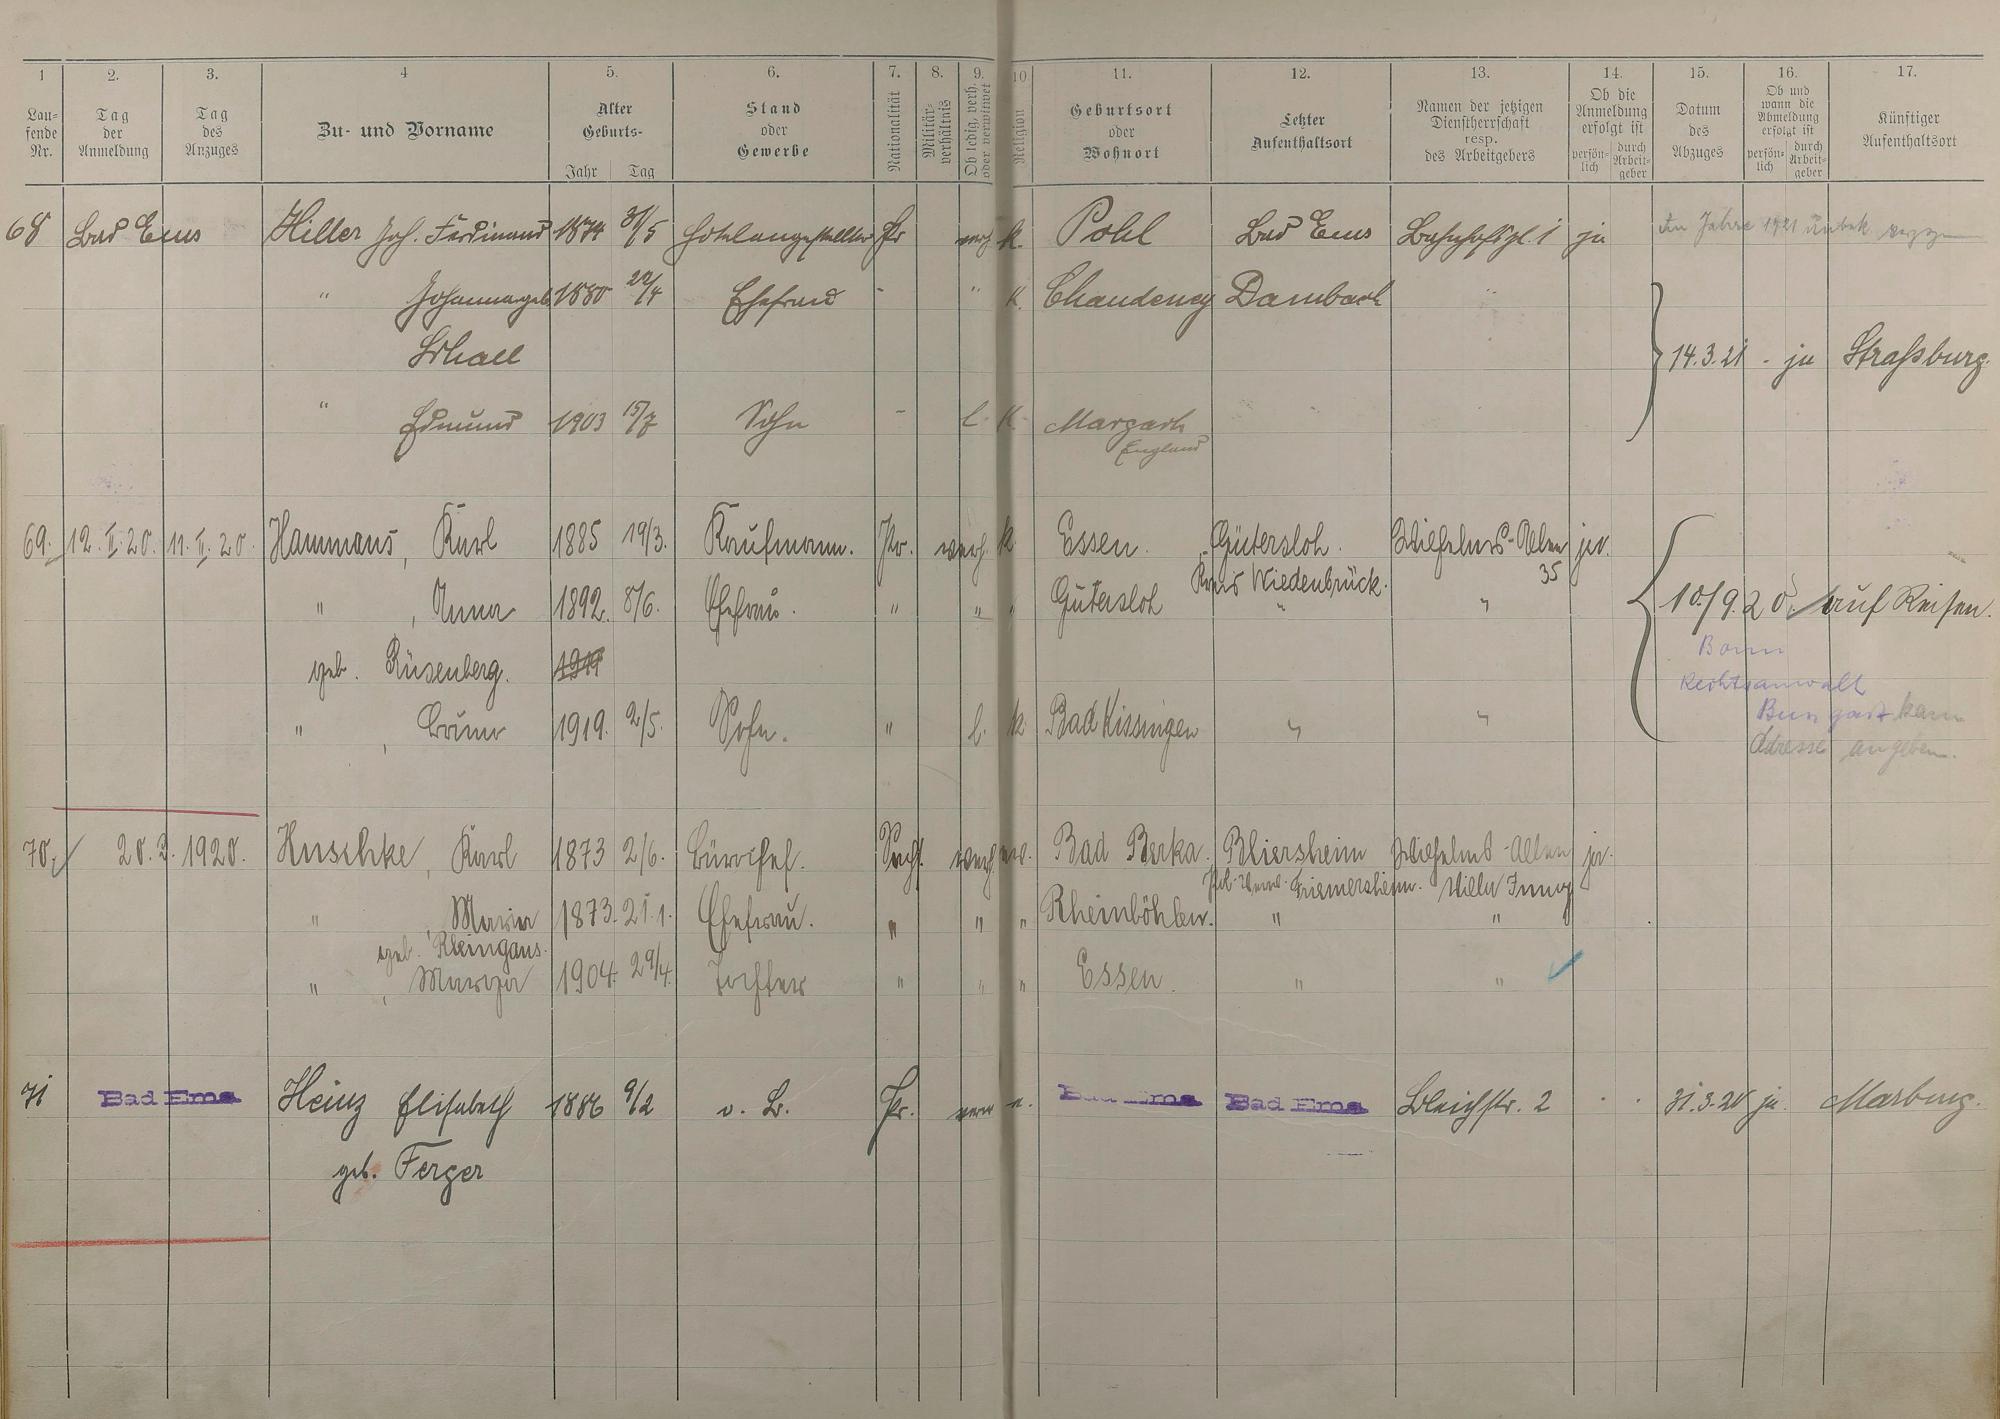 1 2. 3. 4 5. 6. 7. 8. 9. 10 11. 12. 13. 14. 15. 16. 17.
Lau-fende Nr. Tag der Anmeldung Tag des Anzuges Zu- und Vorname Alter Geburts- Jahr Tag Stand oder Gewerbe Nationalität Militär-verhältnis Ob ledig, verh. oder verwitwet Religion Geburtsort oder Wohnort Letzter Aufenthaltsort Namen der jetzigen Dienstherrschaft resp. des Arbeitgebers Ob die Anmeldung erfolgt ist persön-lich durch Arbeit-geber Datum des Abzuges Ob und wann die Abmeldung erfolgt ist persön-lich durch Arbeit-geber Künftiger Aufenthaltsort
68 Bad Ems Hiller Joh. Ferdinand 1874 31/5 Hotelangestellter Pr verh. k. Pohl Bad Ems Bahnhofspl. 1 ja Im Jahre 1921 unbek.
" Johanna geb. 1880 22/4 Ehefrau - " k. Chaudeney Dambach "
Schall 14.3.21 - ja Straßburg.
" Edmund 1903 15/7 Sohn - l. k. Margach
England
69. 12. II. 20. 11. II. 20. Hammans, Karl 1885 19/3. Kaufmann. Pr. verh. k. Essen. Gütersloh. Wilhelms-Allee ja.
Kreis Wiedenbrück. 35
" , Anna 1892. 8/6. Ehefrau. " " " Gütersloh " " 10./9.20. auf Reisen.
geb. Rüsenberg. 1911 Bonn
Rechtsanwalt
" , Bruno 1919. 2/5. Sohn. " l. k. Bad Kissingen " " Bungart kann
Adresse angeben.
70. 20. 2. 1920. Huschke, Karl 1873 2/6. Bürochef. verh. ev. Bad Berka. Bliersheim Wilhelms-Allee ja.
Friemersheim. Villa Jung
" , Maria 1873. 21.1. Ehefrau. " " " Rheinböhlen. " "
geb. Kleingans.
" , Marga 1904. 29/4. Tochter " " " Essen. " "
71 Bad Ems Heinz Elisabeth 1886 9/2 o. B. Pr. verw e. Bad Ems Bad Ems Bleichstr. 2 . . 31.3.20 ja. Marburg.
geb. Ferger